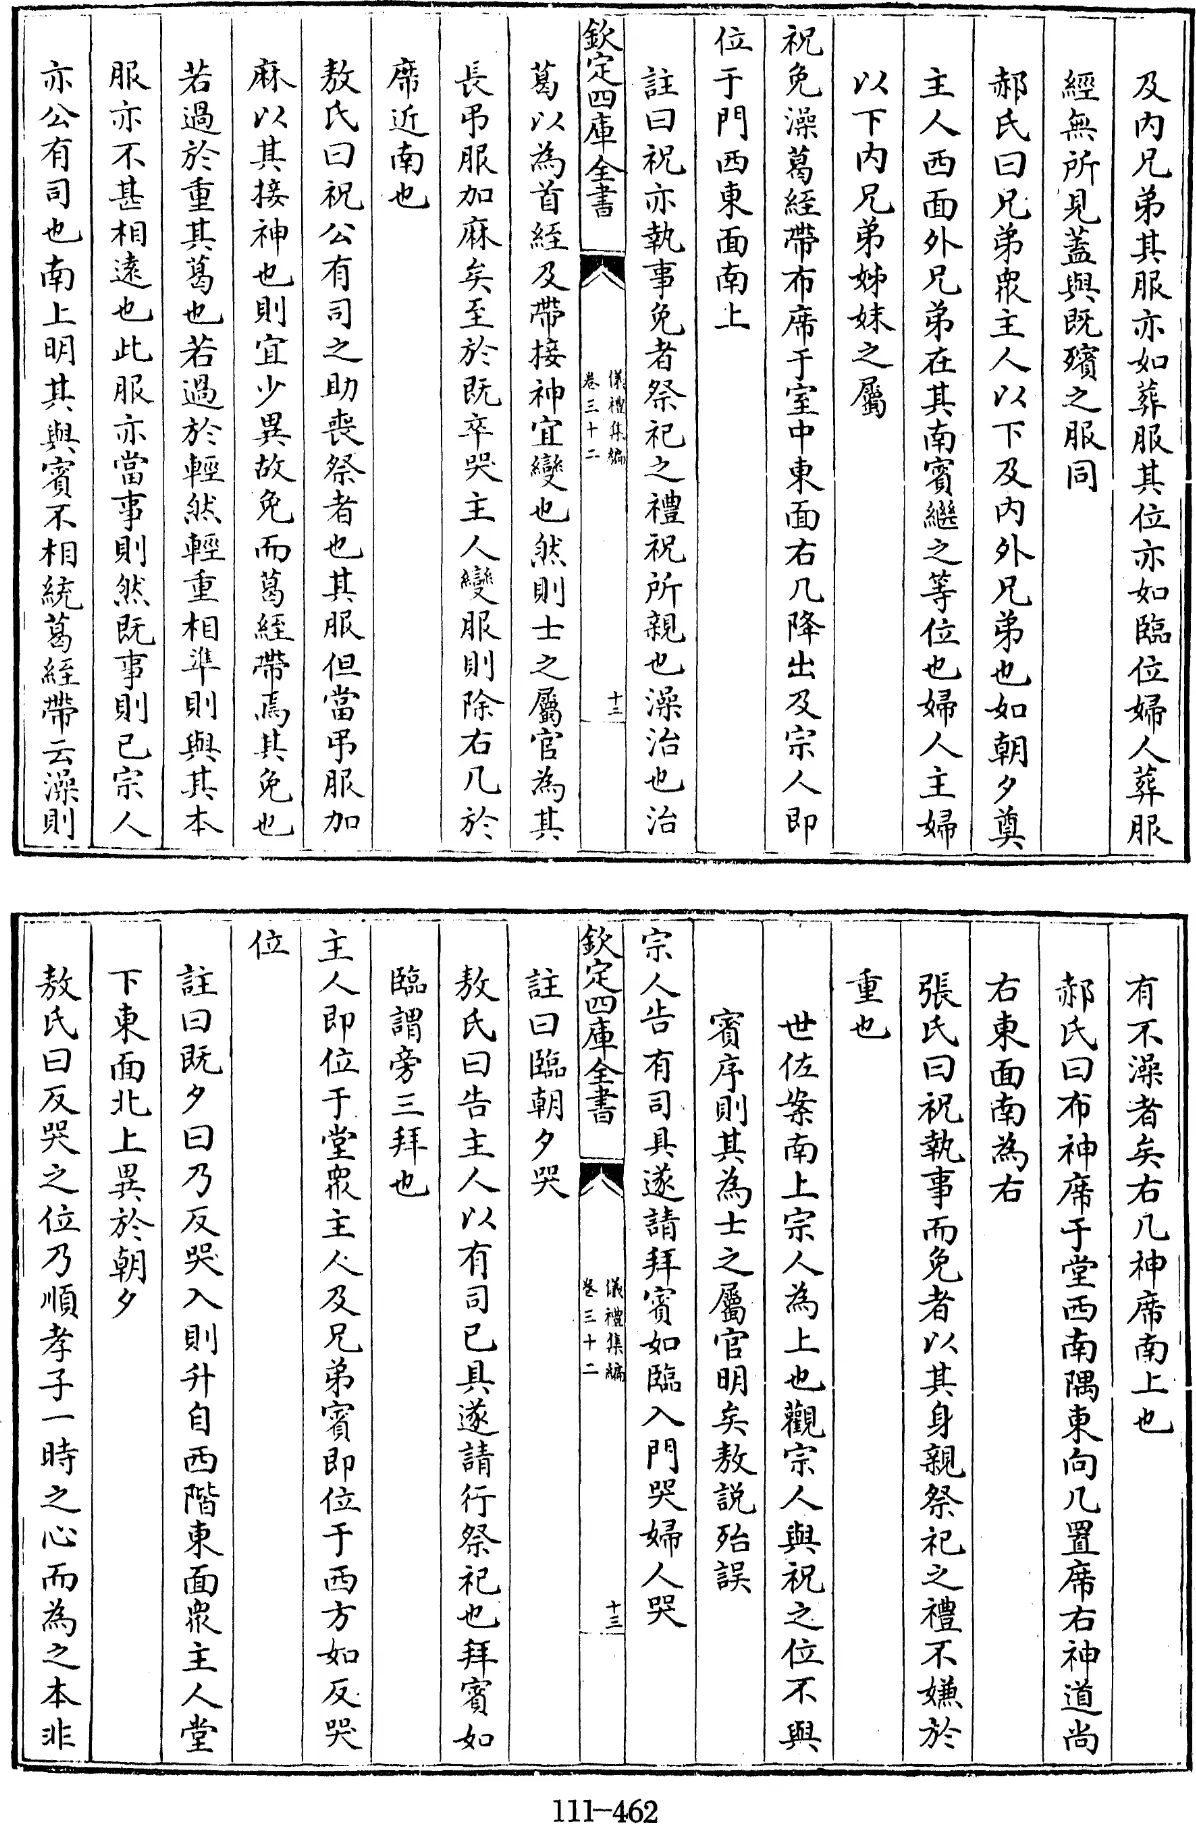 及內兄弟其服亦如葬服其位亦如臨位婦人葬服
經無所見蓋與既殯之服同
郝氏曰兄弟衆主人以下及內外兄弟也如朝夕奠
主人西面外兄弟在其南賓繼之等位也婦人主婦
以下內兄弟姊妹之屬
祝免澡葛絰帶布席于室中東面右几降出及宗人即
位于門西東面南上
註曰祝亦執事免者祭祀之禮祝所親也澡治也治
欽定四庫全書
儀禮集編
卷三十二
十三
葛以為首絰及帶接神宜變也然則士之屬官為其
長弔服加麻矣至於既卒哭主人變服則除右几於
席近南也
敖氏曰祝公有司之助喪祭者也其服但當弔服加
麻以其接神也則宜少異故免而葛絰帶焉其免也
若過於重其葛也若過於輕然輕重相準則與其本
服亦不甚相遠也此服亦當事則然既事則已宗人
亦公有司也南上明其與賓不相統葛絰帶云澡則
有不澡者矣右几神席南上也
郝氏曰布神席于堂西南隅東向几置席右神道尚
右東面南為右
張氏曰祝執事而免者以其身親祭祀之禮不嫌於
重也
世佐案南上宗人為上也觀宗人與祝之位不與
賓序則其為士之屬官明矣敖說殆誤
宗人告有司具遂請拜賓如臨入門哭婦人哭
欽定四庫全書
儀禮集編
卷三十二
十三
註曰臨朝夕哭
敖氏曰告主人以有司已具遂請行祭祀也拜賓如
臨謂旁三拜也
主人即位于堂衆主人及兄弟賓即位于西方如反哭
位
註曰既夕曰乃反哭入則升自西階東面衆主人堂
下東面北上異於朝夕
敖氏曰反哭之位乃順孝子一時之心而為之本非
111-462